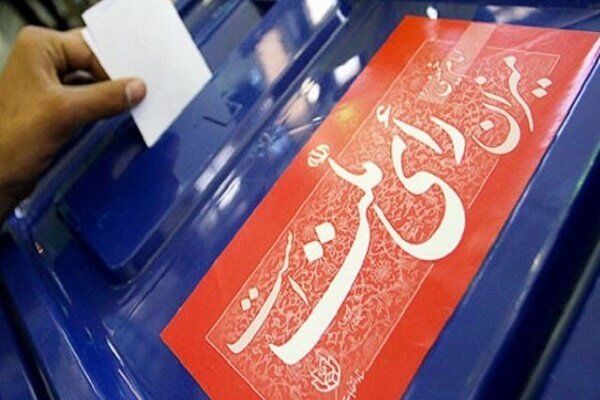 میزان رأی ملّت است